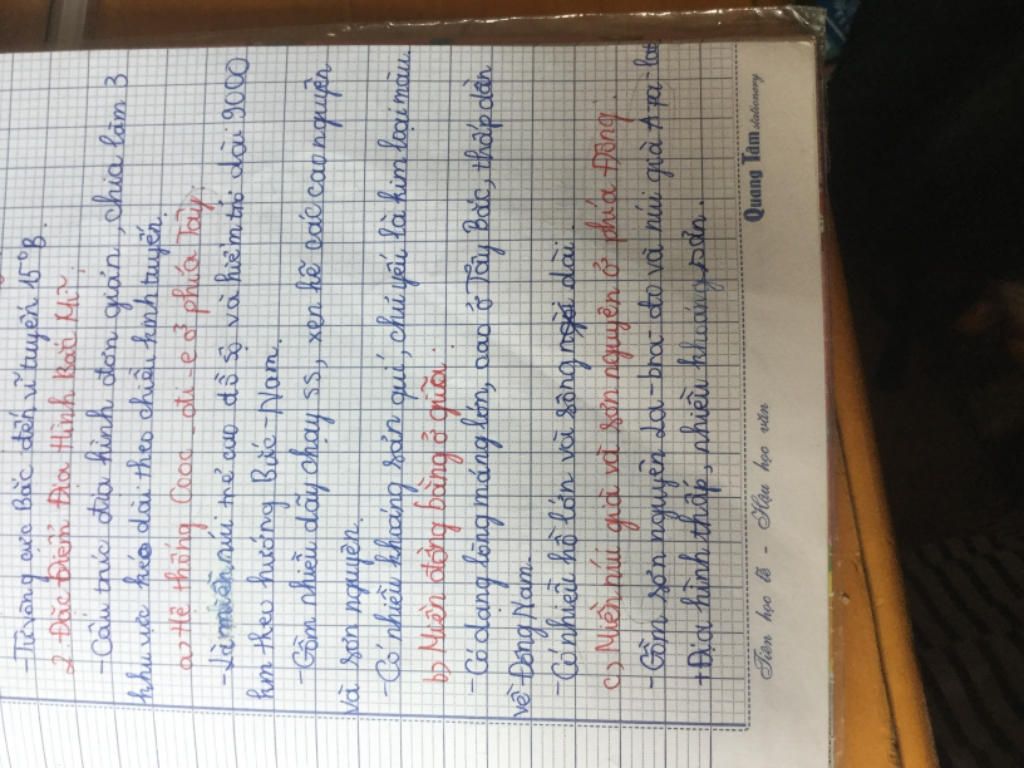 - Từ vòng cực Bắc đến vĩ tuyến 15°B.
2. Đặc Điểm Địa Hình Bắc Mĩ:
- Cấu trúc địa hình đơn giản, chia làm 3
khu vực kéo dài theo chiều kinh tuyến.
a) Hệ thống Cooc-đi-e ở phía Tây:
- Là miền núi trẻ cao đồ sộ và hiểm trở dài 9000
km theo hướng Bắc-Nam.
- Gồm nhiều dãy chạy ss, xen kẽ các cao nguyên
và sơn nguyên.
- Có nhiều khoáng sản quí, chủ yếu là kim loại màu.
b) Miền đồng bằng ở giữa:
- Có dạng lòng máng lớn, cao ở Tây Bắc, thấp dần
về Đông Nam.
- Có nhiều hồ lớn và sông dài.
c) Miền núi già và sơn nguyên ở phía Đông:
- Gồm sơn nguyên La-bra-đo và núi già A-pa-lat
+ Địa hình thấp, nhiều khoáng sản.
Tiên học lễ - Hậu học văn
Quang Tâm stationery